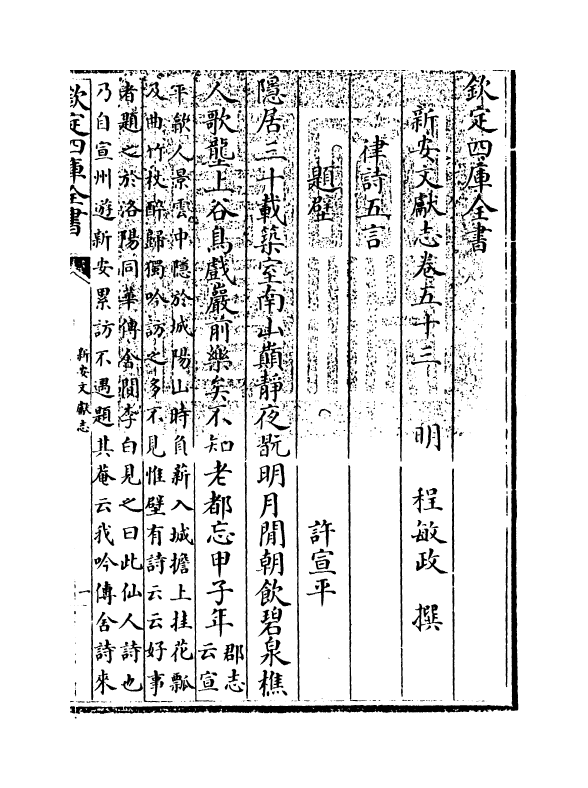 欽定四庫全書
新安文獻志卷五十三　明　程敏政　撰
律詩五言
題壁　許宣平
隱居三十載築室南山巔靜夜翫明月閒朝飲碧泉樵
人歌壟上谷鳥戲巖前樂矣不知老都忘甲子年
郡志
云宣
平歙人景雲中隱於城陽山時負薪入城擔上挂花瓢
及曲竹杖醉歸獨吟訪之多不見惟壁有詩云云好事
者題之於洛陽同華傳舍間李白見之曰此仙人詩也
乃自宣州遊新安累訪不遇題其菴云我吟傳舍詩來
欽定四庫全書
新安文獻志
一